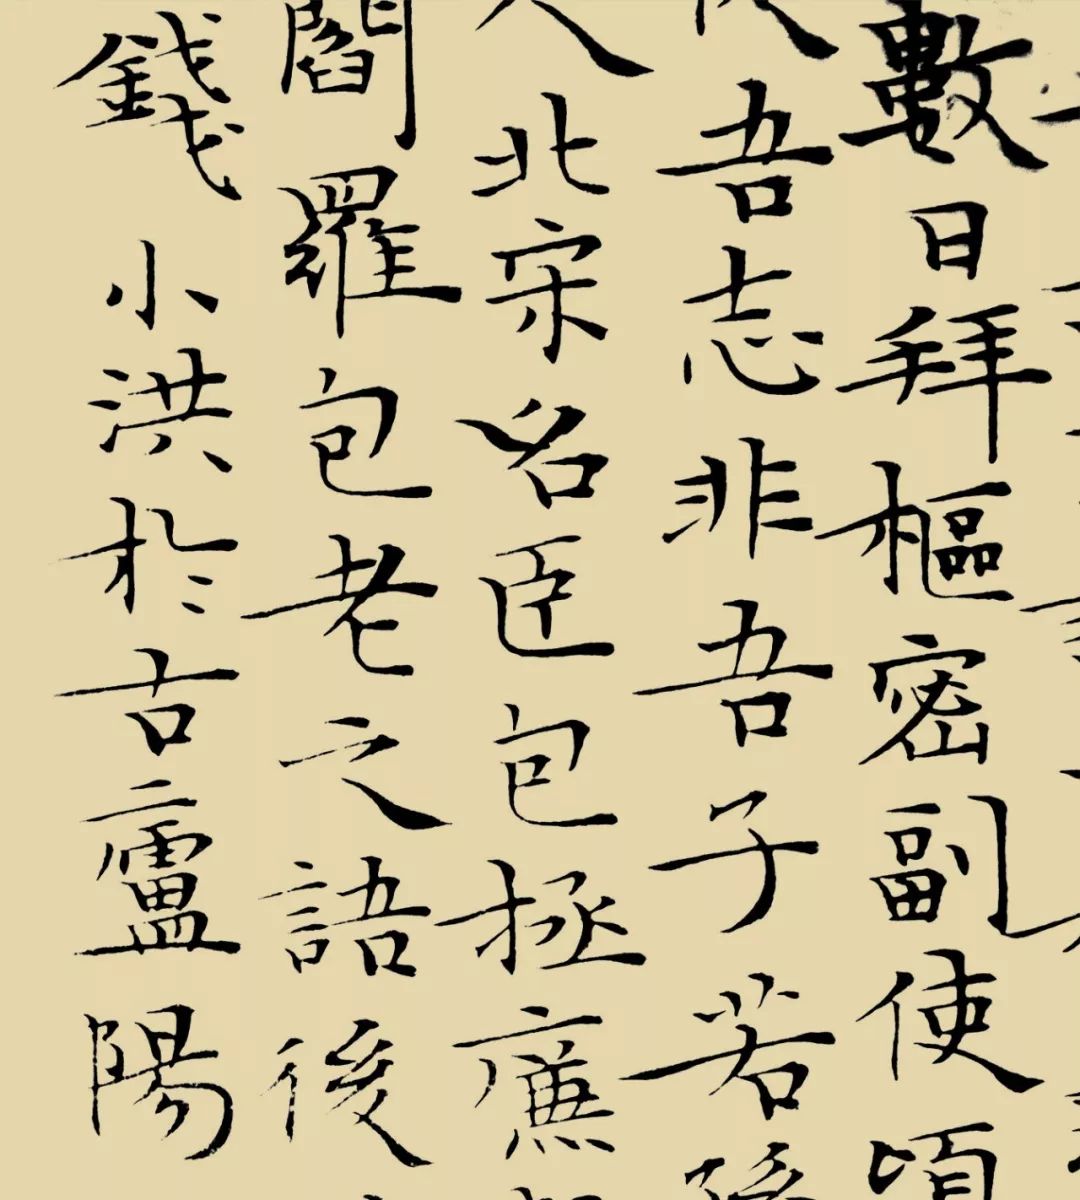 數日拜樞密副使頃
吾志非吾子若孫
人北宋名臣包拯廉
閻羅包老之語後
錢小洪於古廬陽